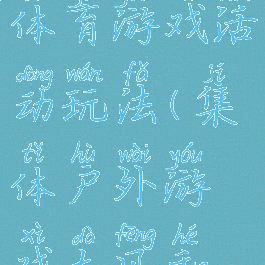 体育游戏活
dòng wán fǎ jí
动玩法(集
tǐ hù wài yóu
体户外游
xì dà fēng hé